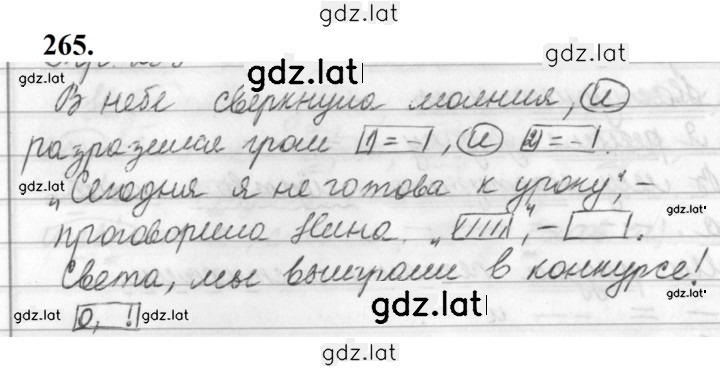 gdz.lat
265.
gdz.lat
gdz.lat
gdz.lat
В небе сверкнула молния, и
gdz.lat
разразился гром [1 = -], и [2 = -].
gdz.lat
„Сегодня я не готова к уроку", –
gdz.lat
проговорила Нина. „[", – [ ].
Света, мы выиграли в конкурсе!
gdz.lat
gdz.lat
[О, !]
gdz.lat
gdz.lat
gdz.lat